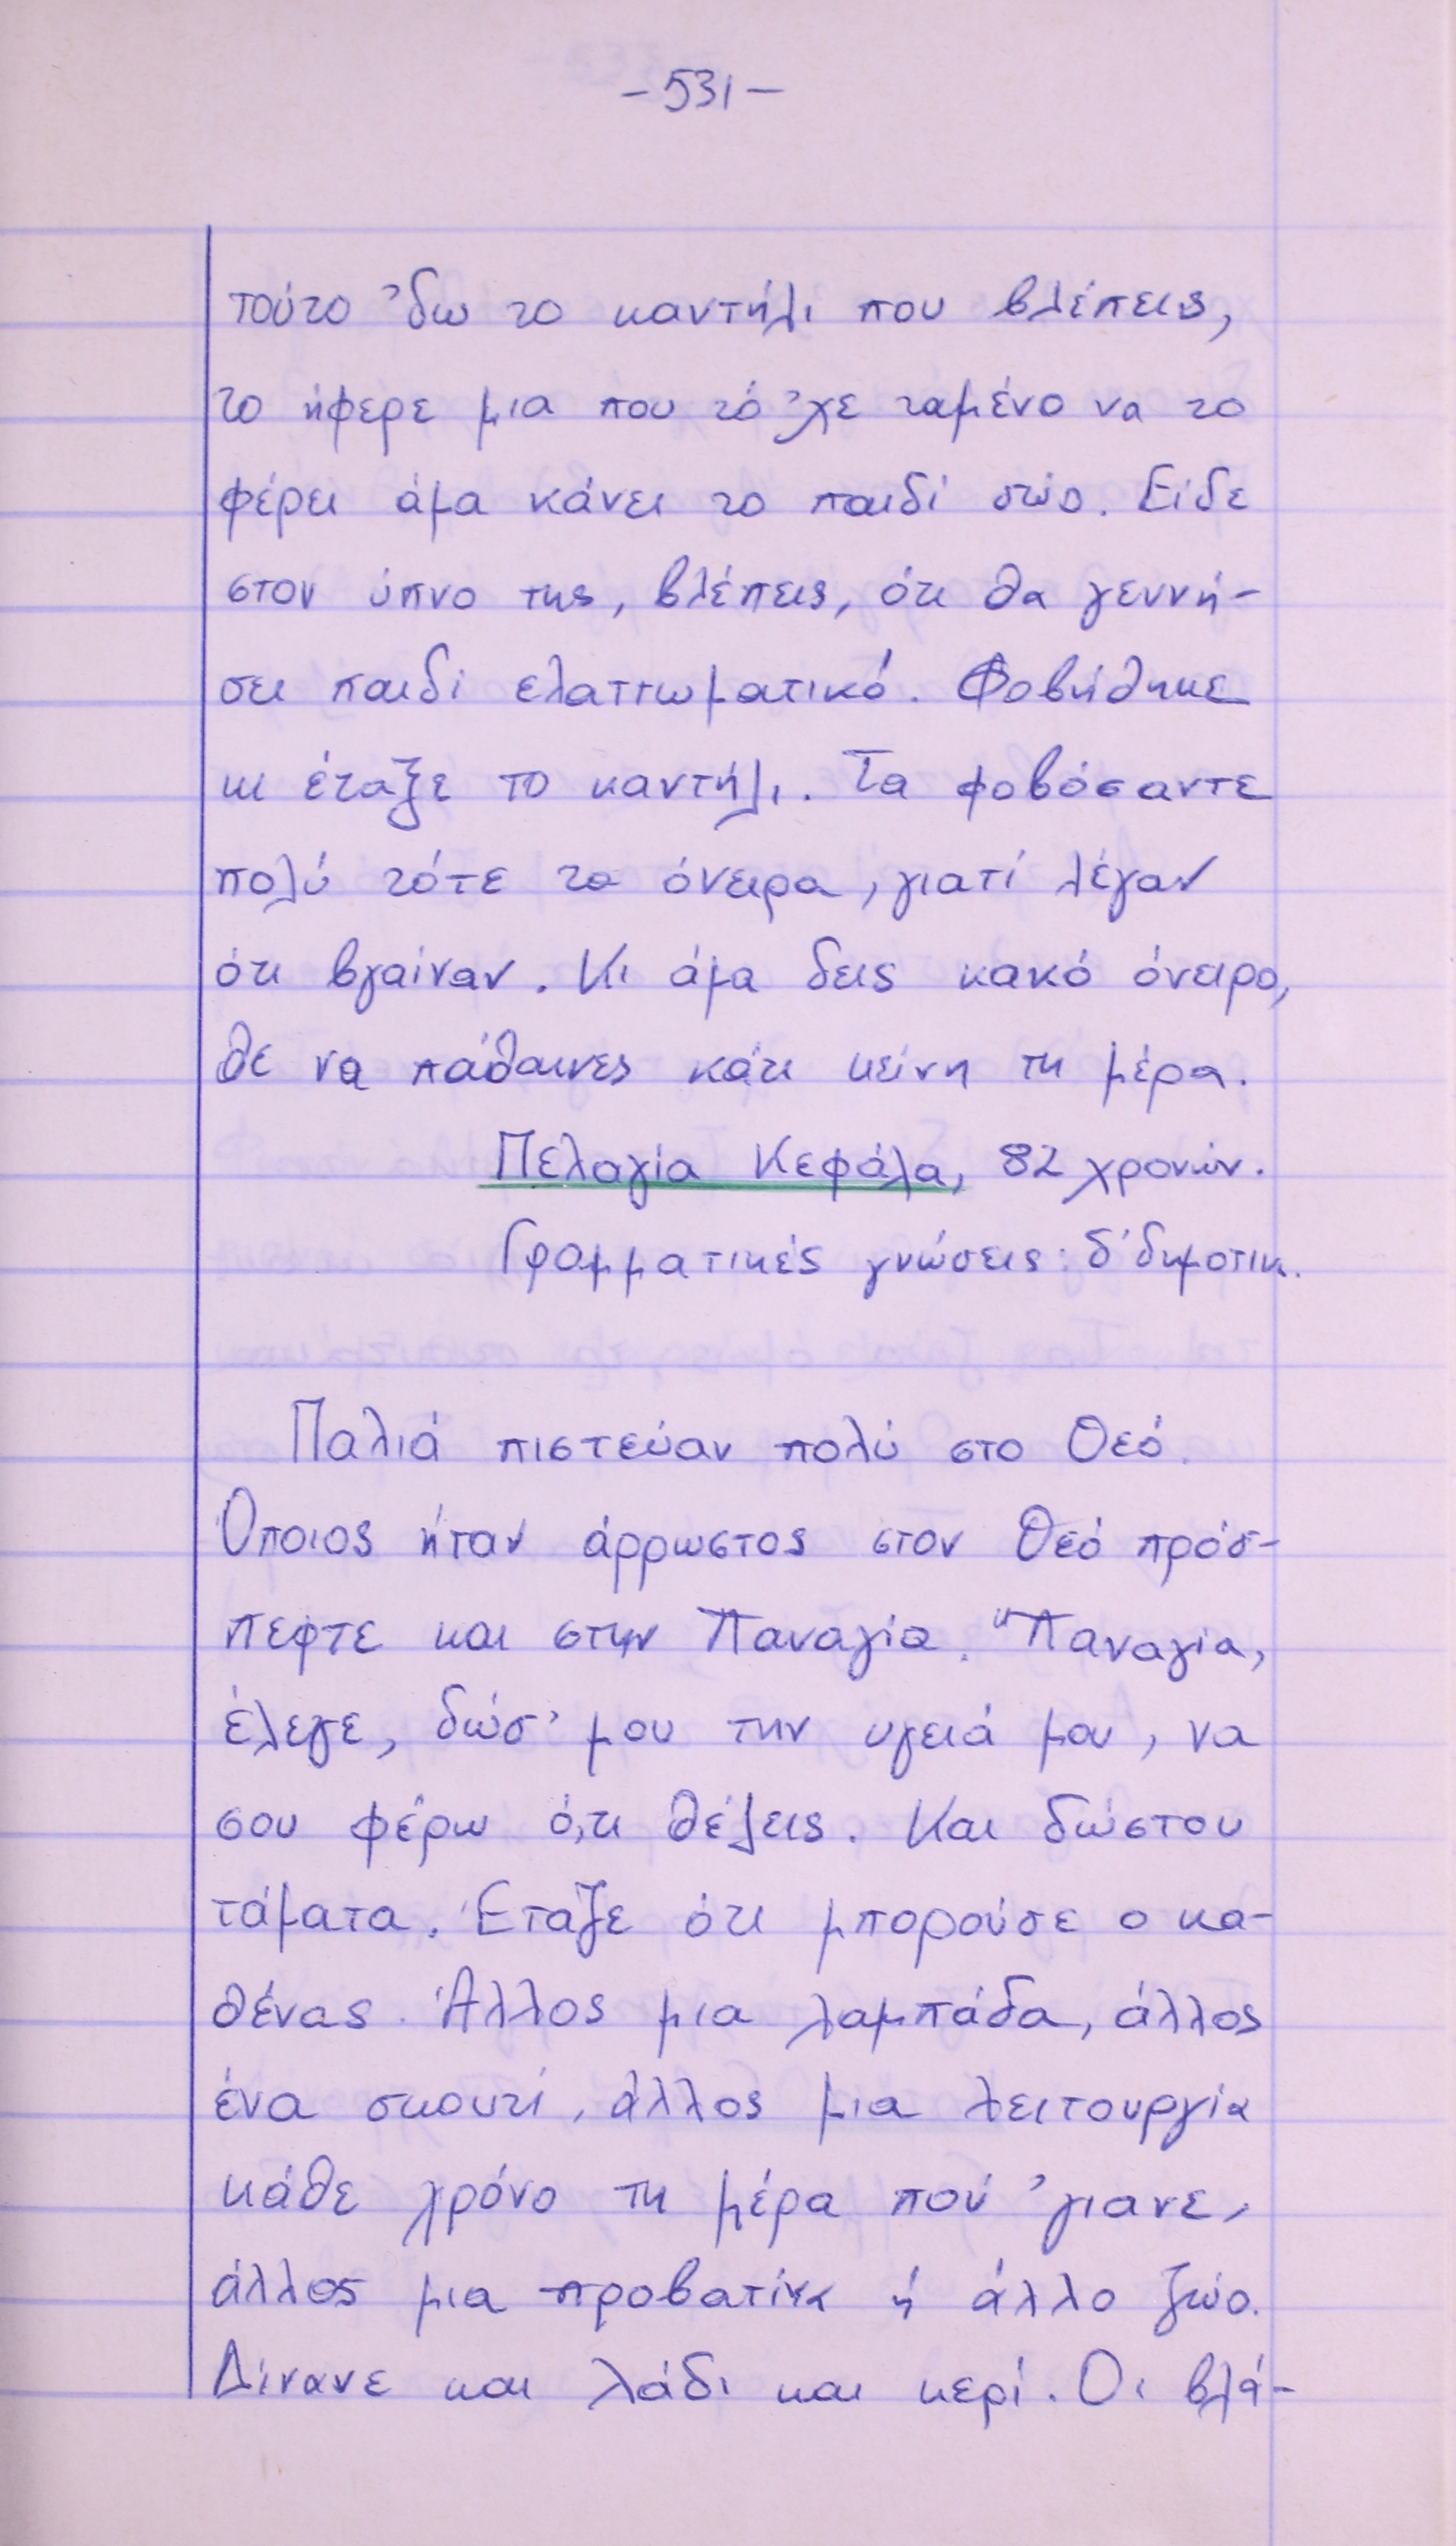 -531-
τούτο 'δω το καντήλι που βλέπεις,
το ήφερε μια που τό 'χε ταμένο να το
φέρει άμα κάνει το παιδί σώο. Είδε
στον ύπνο της, βλέπεις, ότι θα γεννή-
σει παιδί ελαττωματικό. Φοβήθηκε
κι έταξε το καντήλι. Τα φοβόσαντε
πολύ τότε τα όνειρα, γιατί λέγαν
ότι βγαίναν. Κι άμα δεις κακό όνειρο,
θε να πάθαινες κάτι κείνη τη μέρα.
Πελαγία Κεφάλα, 82 χρονών.
Γραμματικές γνώσεις: δ' δημοτικ.
Παλιά πιστεύαν πολύ στο Θεό.
Όποιος ήταν άρρωστος στον Θεό πρόσ-
πεφτε και στην Παναγία. "Παναγία,
έλεγε, δώσ' μου την υγειά μου, να
σου φέρω ό,τι θέλεις. Και δώστου
τάματα. Έταζε ότι μπορούσε ο κα-
θένας. Άλλος μια λαμπάδα, άλλος
ένα σκουτί, άλλος μια λειτουργία
κάθε χρόνο τη μέρα πού 'γιανε,
άλλος μια προβατίνα ή άλλο ζώο.
Δίνανε και λάδι και κερί. Οι βλά-